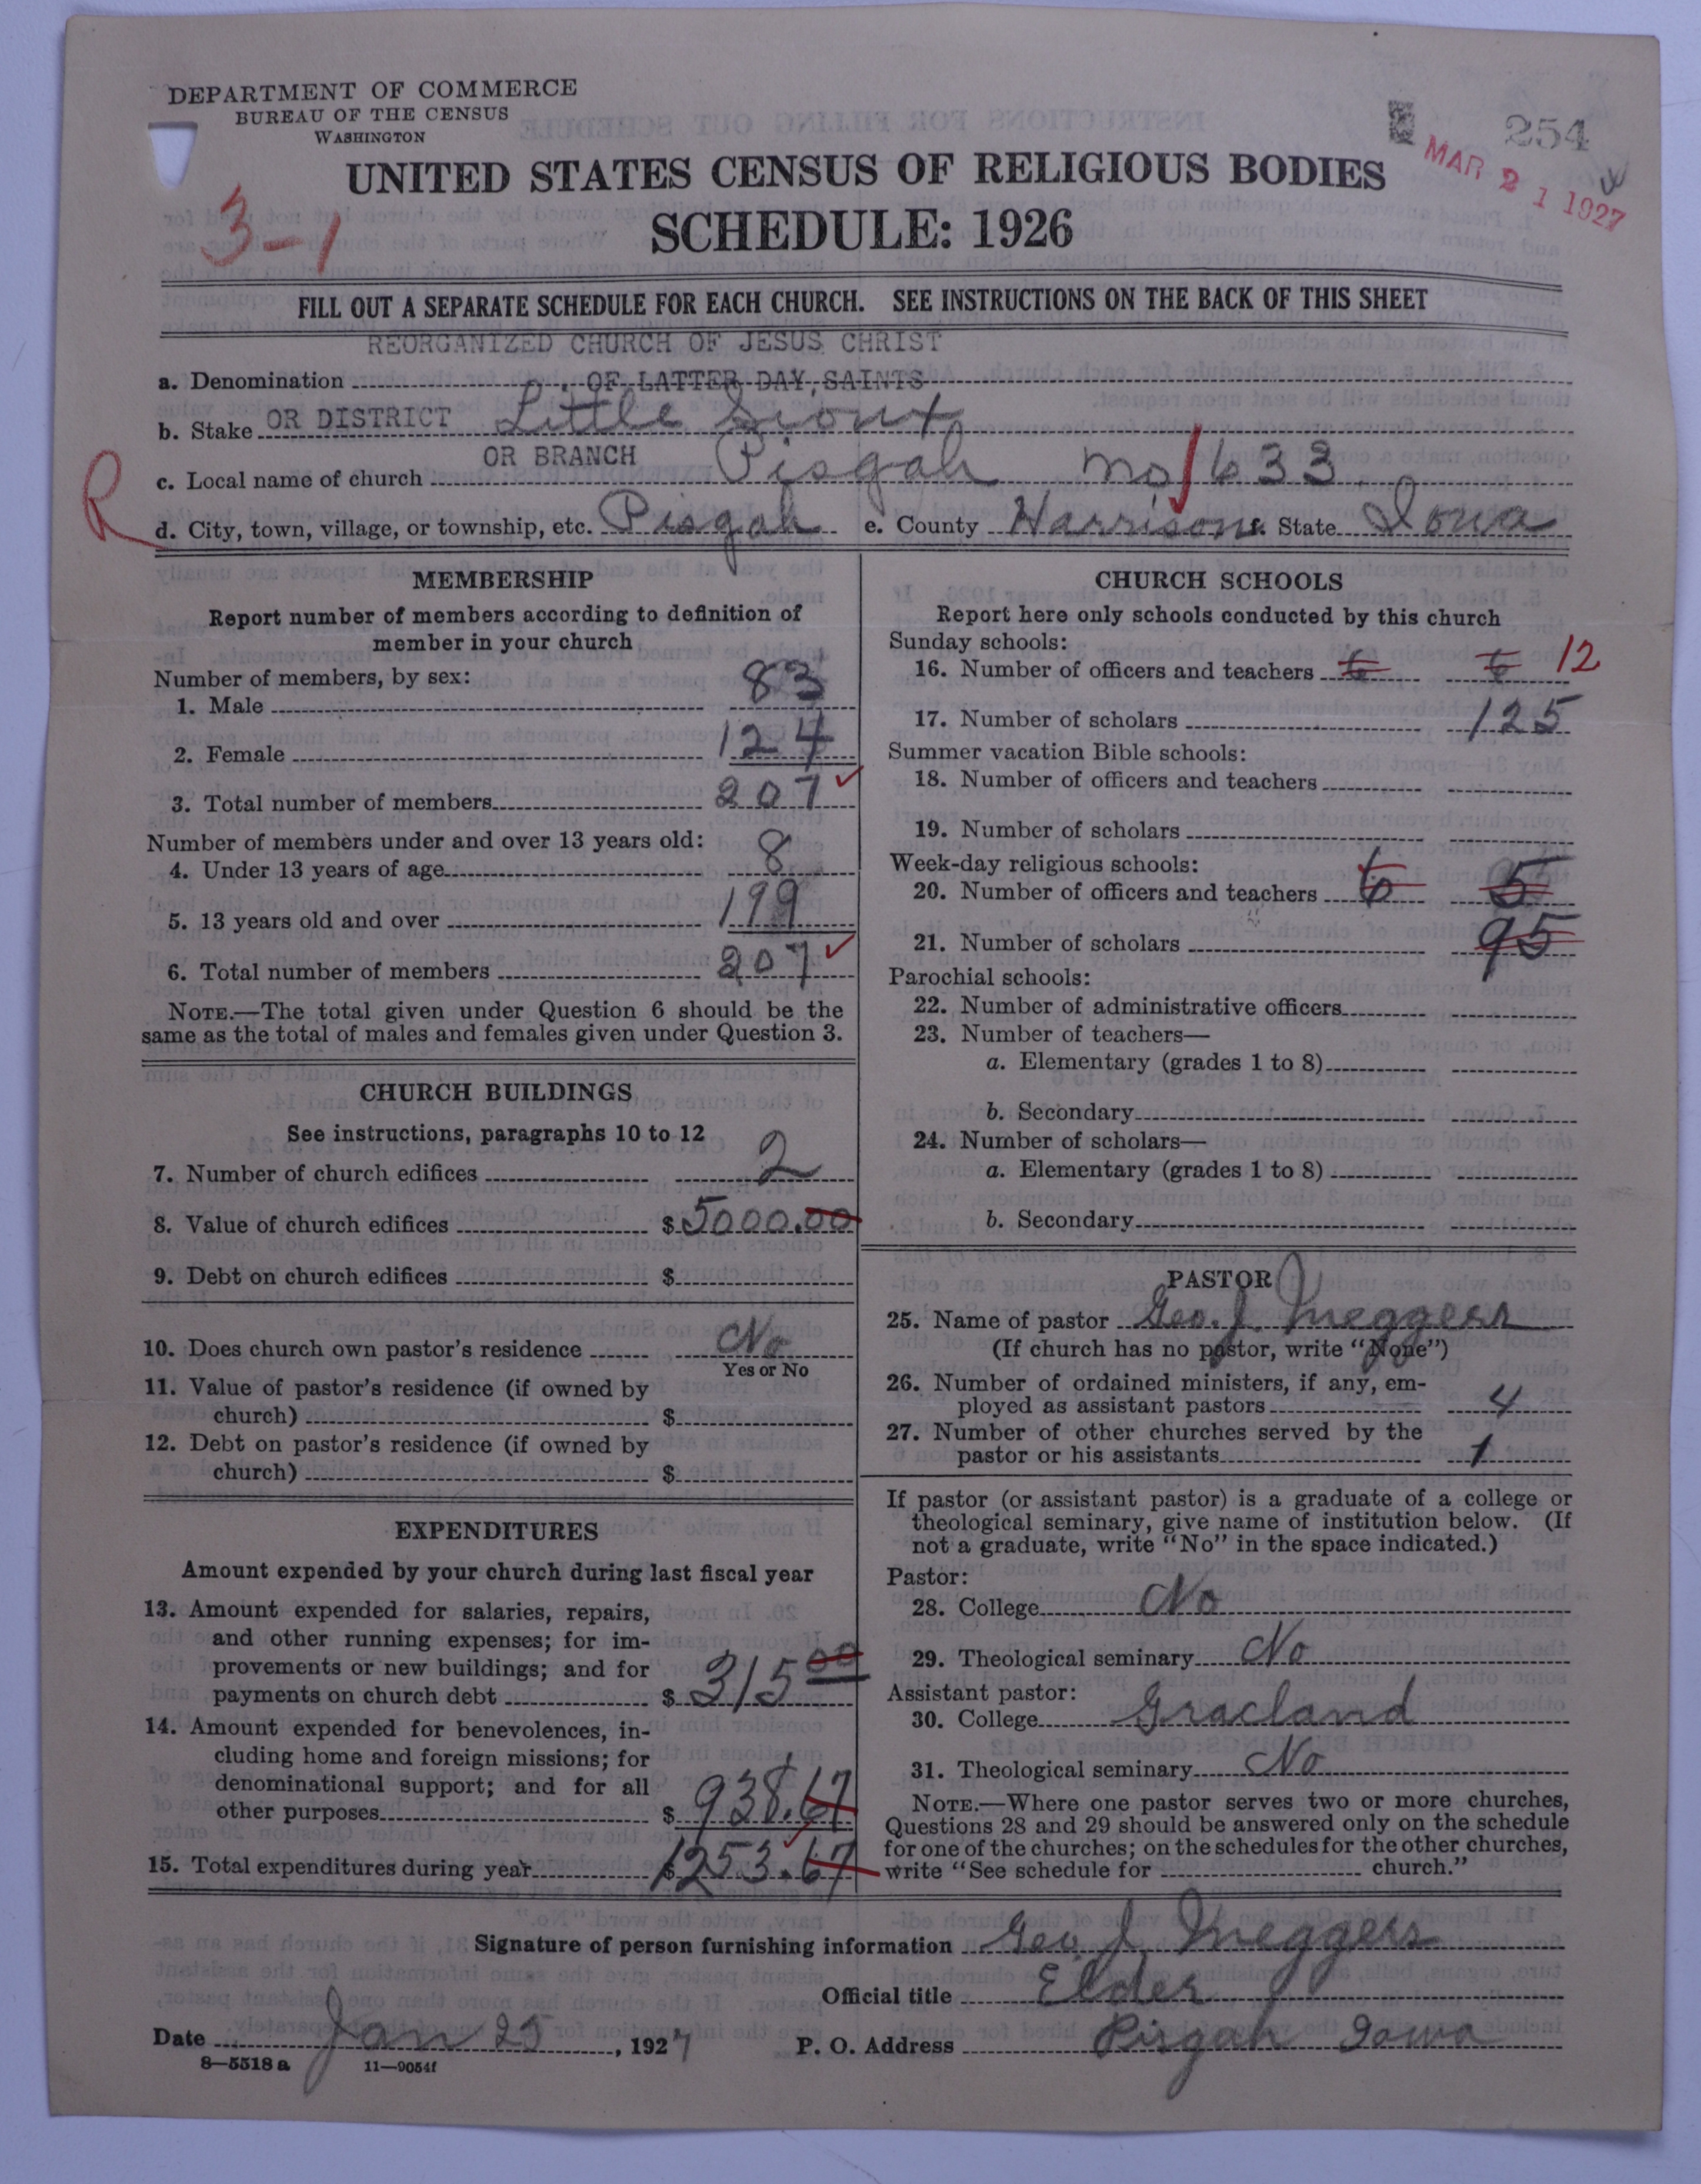 DEPARTMENT OF COMMERCE
BUREAU OF THE CENSUS
WASHINGTON
254
MAR 21 1927
UNITED STATES CENSUS OF RELIGIOUS BODIES
3-1
SCHEDULE: 1926
FILL OUT A SEPARATE SCHEDULE FOR EACH CHURCH. SEE INSTRUCTIONS ON THE BACK OF THIS SHEET
REORGANIZED CHURCH OF JESUS CHRIST
a. Denomination OF LATTER DAY SAINTS
b. Stake OR DISTRICT Little Sioux
R
c. Local name of church OR BRANCH Pisgah no 1633
d. City, town, village, or township, etc. Pisgah e. County Harrison f. State Iowa
MEMBERSHIP
Report number of members according to definition of
member in your church
Number of members, by sex:
1. Male 83
2. Female 124
3. Total number of members 207
Number of members under and over 13 years old:
4. Under 13 years of age 8
5. 13 years old and over 199
6. Total number of members 207
NOTE.—The total given under Question 6 should be the
same as the total of males and females given under Question 3.
CHURCH BUILDINGS
See instructions, paragraphs 10 to 12
7. Number of church edifices 2
8. Value of church edifices $ 5000.00
9. Debt on church edifices $
10. Does church own pastor's residence No
Yes or No
11. Value of pastor's residence (if owned by
church) $
12. Debt on pastor's residence (if owned by
church) $
EXPENDITURES
Amount expended by your church during last fiscal year
13. Amount expended for salaries, repairs,
and other running expenses; for im-
provements or new buildings; and for
payments on church debt $ 315 00
14. Amount expended for benevolences, in-
cluding home and foreign missions; for
denominational support; and for all
other purposes $ 938.67
15. Total expenditures during year $ 1253.67
CHURCH SCHOOLS
Report here only schools conducted by this church
Sunday schools:
16. Number of officers and teachers 6 6 12
17. Number of scholars 125
Summer vacation Bible schools:
18. Number of officers and teachers
19. Number of scholars
Week-day religious schools:
20. Number of officers and teachers 6 5
21. Number of scholars 95
Parochial schools:
22. Number of administrative officers
23. Number of teachers—
a. Elementary (grades 1 to 8)
b. Secondary
24. Number of scholars—
a. Elementary (grades 1 to 8)
b. Secondary
PASTOR
25. Name of pastor Geo. J. Meggers
(If church has no pastor, write "None")
26. Number of ordained ministers, if any, em-
ployed as assistant pastors 4
27. Number of other churches served by the
pastor or his assistants 1
If pastor (or assistant pastor) is a graduate of a college or
theological seminary, give name of institution below. (If
not a graduate, write "No" in the space indicated.)
Pastor:
28. College No
29. Theological seminary No
Assistant pastor:
30. College Gracland
31. Theological seminary No
NOTE.—Where one pastor serves two or more churches,
Questions 28 and 29 should be answered only on the schedule
for one of the churches; on the schedules for the other churches,
write "See schedule for church."
Signature of person furnishing information Geo. J. Meggers
Official title Elder
Date Jan 25, 1927 P. O. Address Pisgah Iowa
8—5518 a 11—9054f